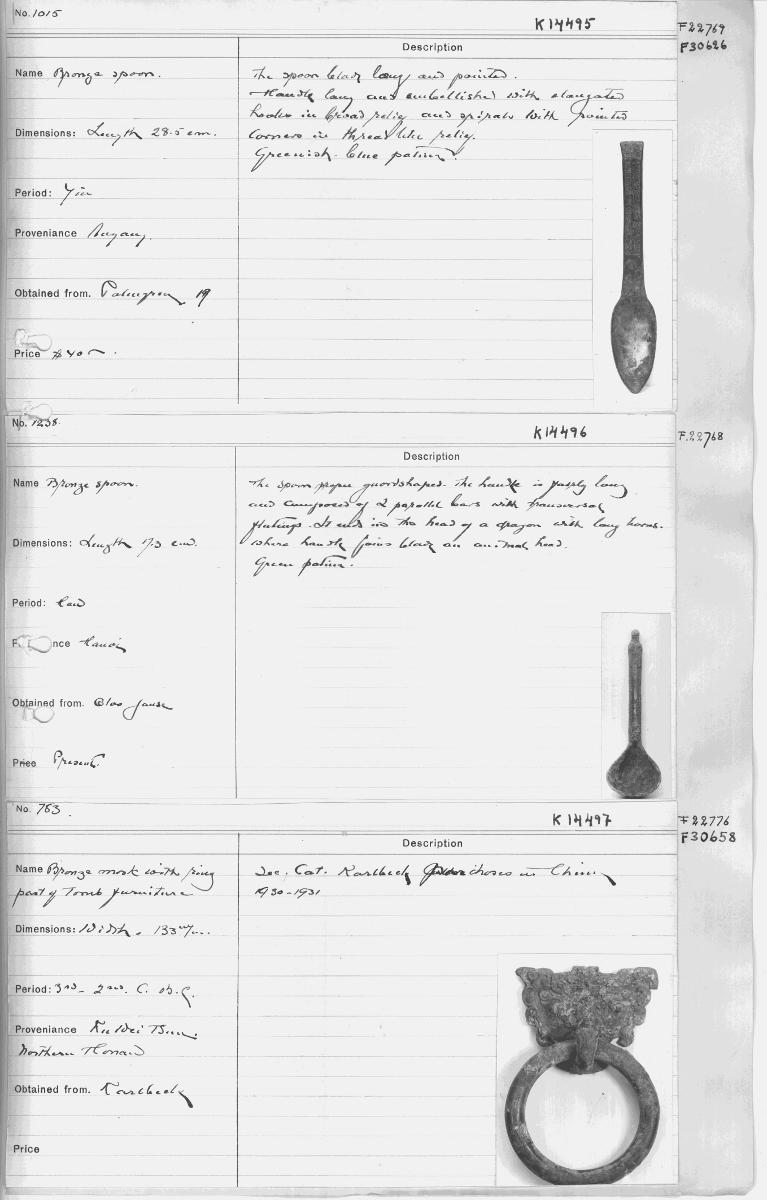 No. 1015
K14495
F22769
F30626
Description
Name Bronze spoon.
The spoon blade long and pointed.
Handle long and embellished with elongated
hooks in broad relief and spirals with pointed
Dimensions: Length 28.5 cm.
corners in thread like relief.
Greenish-blue patina.
Period: Yin
Proveniance Anyang.
Obtained from. Palmgren 19
Price $40
No. 1238
K14496
F.22768
Description
Name Bronze spoon.
The spoon proper guordshaped. The handle is fairly long
and composed of 2 parallel bars with transversal
flutings. It ends in the head of a dragon with long horns.
Dimensions: Length 17.3 cm.
Where handle joins blade an animal head.
Green patina.
Period: Han
nce Hanoi
Obtained from. Olov Janse
Price Present
No. 763
K14497
F22776
F30658
Description
Name Bronze mask with ring
See. Cat. Karlbeck in China
part of Tomb furniture
1930-1931
Dimensions: Width. 133 m/m.
Period: 3rd - 2nd. C. B.C.
Proveniance Ku Wei Tsun,
Northern Honan
Obtained from. Karlbeck
Price